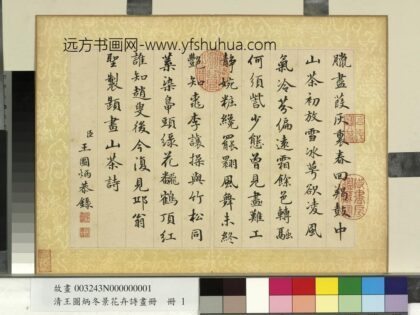 远方书画网-www.yfshuhua.com
臘盡葭灰裏春回羯鼓中
山茶初放雪冰萼欲凌風
氣冷芬偏遠霜餘色轉融
何須訾少態曾見畫難工
靜婉粧纔罷翾風舞未終
艷知桃李讓操與竹松同
葉染鳧頭緑花飜鶴頂紅
誰知趙叟後今復見邛翁
聖製題畫山茶詩
臣王圖炳恭錄
故畫 003243N000000001
清王圖炳冬景花卉詩畫冊 冊 1